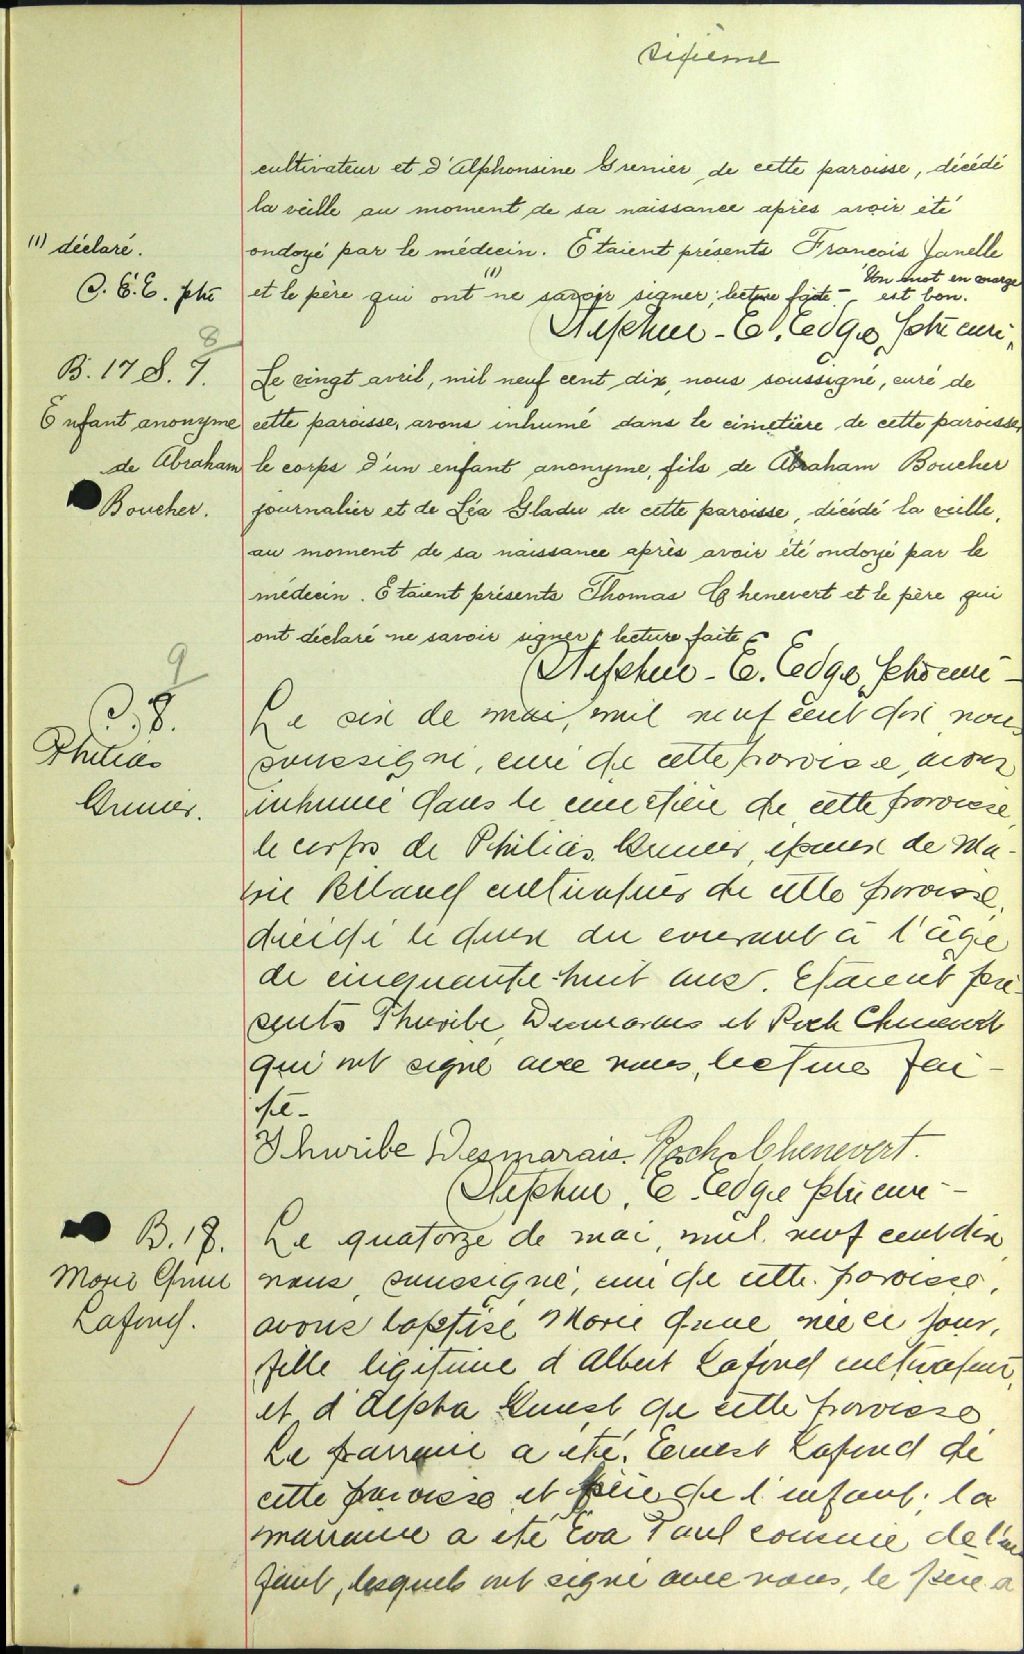 sixième
cultivateur et d'Alphonsine Grenier, de cette paroisse, décédé
la veille au moment de sa naissance après avoir été
(1) déclaré.
ondoyé par le médecin. Etaient présents François Janelle
S. E. E. ptre
et le père qui ont (1) ne savoir signer; lecture faite - Un mot en marge
est bon.
Stephen - E. Edge, ptre curé,
8
B. 17 S. 7.
Enfant anonyme
de Abraham
Boucher.
Le vingt avril, mil neuf cent dix, nous soussigné, curé de
cette paroisse, avons inhumé dans le cimetière de cette paroisse,
le corps d'un enfant anonyme, fils de Abraham Boucher
journalier et de Léa Gladu de cette paroisse, décédé la veille,
au moment de sa naissance après avoir été ondoyé par le
médecin. Etaient présents Thomas Chenevert et le père qui
ont déclaré ne savoir signer, lecture faite
Stephen - E. Edge, ptre curé -
9
S. 8.
Philias
Grenier.
Le six de mai, mil neuf cent dix nous
soussigné, curé de cette paroisse, avons
inhumé dans le cimetière de cette paroisse,
le corps de Philias Grenier, époux de Ma-
rie Béland cultivateur de cette paroisse,
décédé le deux du courant à l'âge
de cinquante-huit ans. Etaient pré-
sents Thuribe Desmarais et Roch Chenevert
qui ont signé avec nous, lecture fai-
te -
Thuribe Desmarais. Roch Chenevert.
Stephen. E. Edge ptre curé -
B. 18.
Marie Anne
Lafond.
Le quatorze de mai, mil neuf cent dix
nous, soussigné, curé de cette paroisse,
avons baptisé Marie Anne née ce jour,
fille légitime d'Albert Lafond cultivateur,
et d'Alpha de cette paroisse
Le parrain a été Ernest Lafond de
cette paroisse et frère de l'enfant; la
marraine a été Eva Paul cousine de l'en-
fant, lesquels ont signé avec nous, le père a